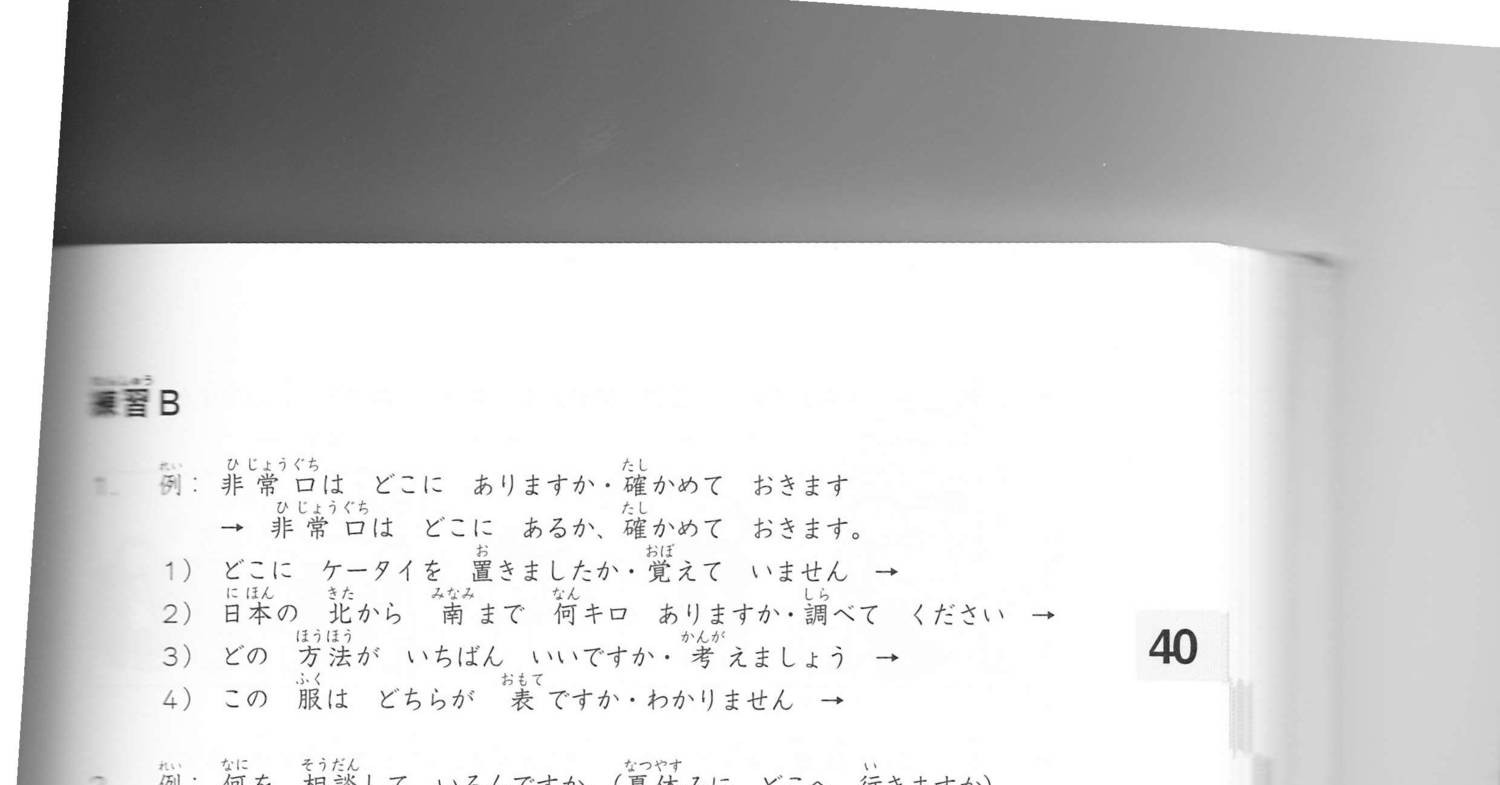 練習B
1. 例：非常口は　どこに　ありますか・確かめて　おきます
→　非常口は　どこに　あるか、確かめて　おきます。
1）　どこに　ケータイを　置きましたか・覚えて　いません　→
2）　日本の　北から　南まで　何キロ　ありますか・調べて　ください　→
3）　どの　方法が　いちばん　いいですか・考えましょう　→
4）　この　服は　どちらが　表ですか・わかりません　→
40
例：何を　相談して　いるんですか（夏休みに　どこへ　行きますか）